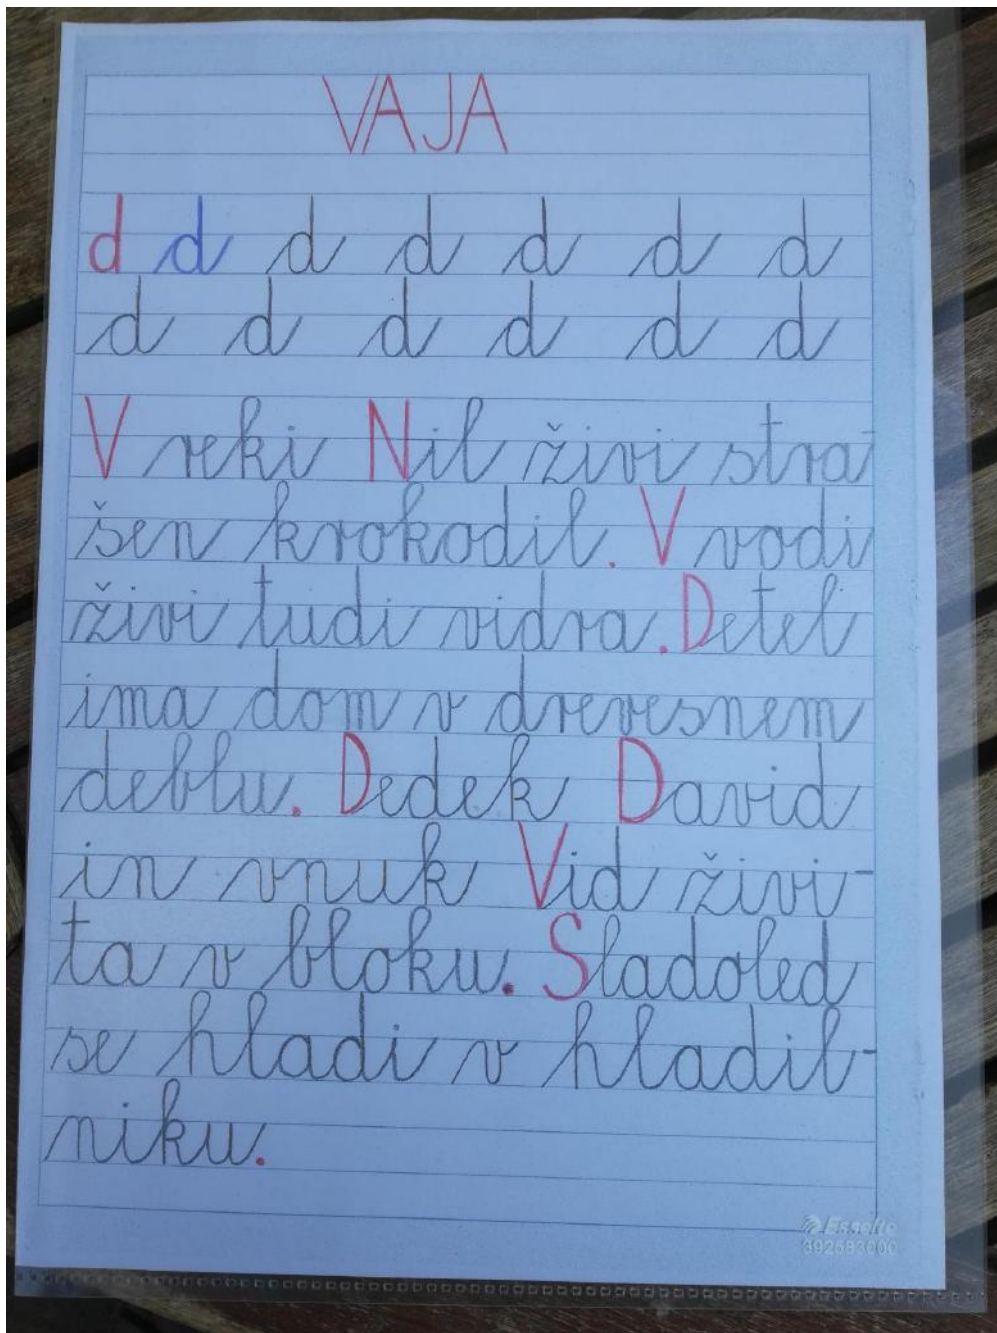 VAJA
d d d d d d d
d d d d d d
V reki Nil živi stra-
šen krokodil. V vodi
živi tudi vidra. Detel
ima dom v drevesnem
deblu. Dedek David
in vnuk Vid živi-
ta v bloku. Sladoled
se hladi v hladil-
niku.
Esselte
392583000